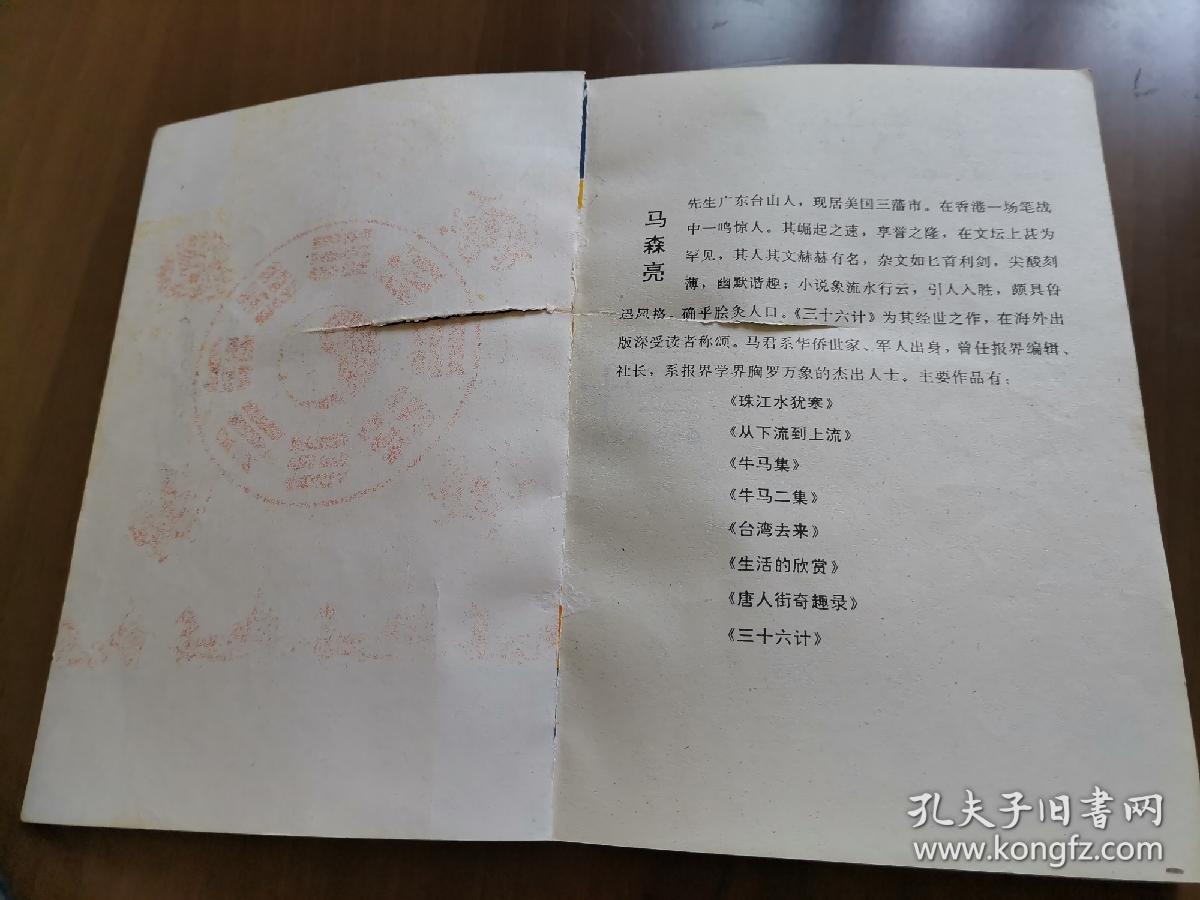 马森亮
先生广东台山人，现居美国三藩市。在香港一场笔战
中一鸣惊人。其崛起之速，享誉之隆，在文坛上甚为
罕见，其人其文赫赫有名，杂文如匕首利剑，尖酸刻
薄，幽默谐趣；小说象流水行云，引人入胜，颇具鲁
迅风格，确乎脍炙人口。《三十六计》为其经世之作，在海外出
版深受读者称颂。马君系华侨世家、军人出身，曾任报界编辑、
社长，系报界学界胸罗万象的杰出人士。主要作品有：
《珠江水犹寒》
《从下流到上流》
《牛马集》
《牛马二集》
《台湾去来》
《生活的欣赏》
《唐人街奇趣录》
《三十六计》
孔夫子旧书网
www.kongfz.com